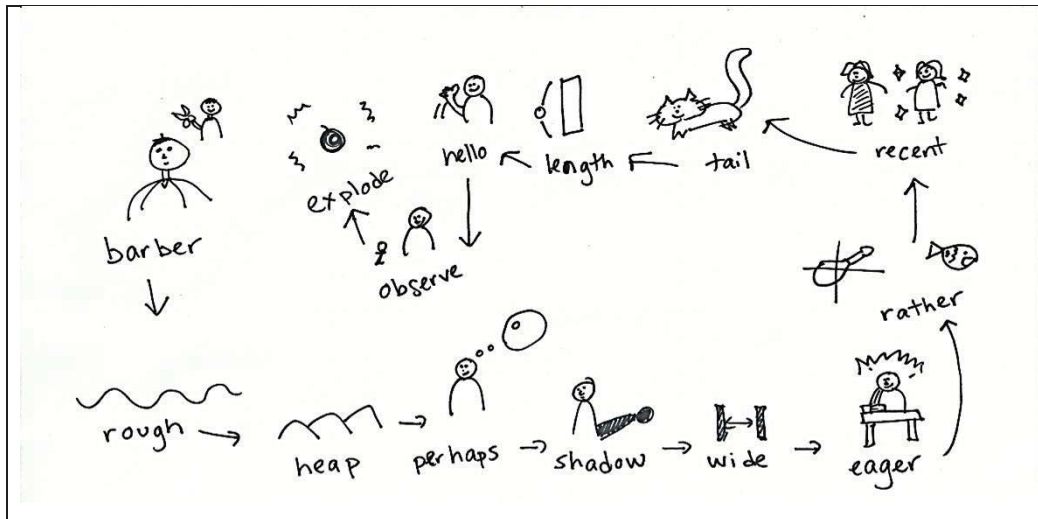 barber
rough
heap
perhaps
shadow
wide
eager
rather
recent
tail
length
hello
observe
explode